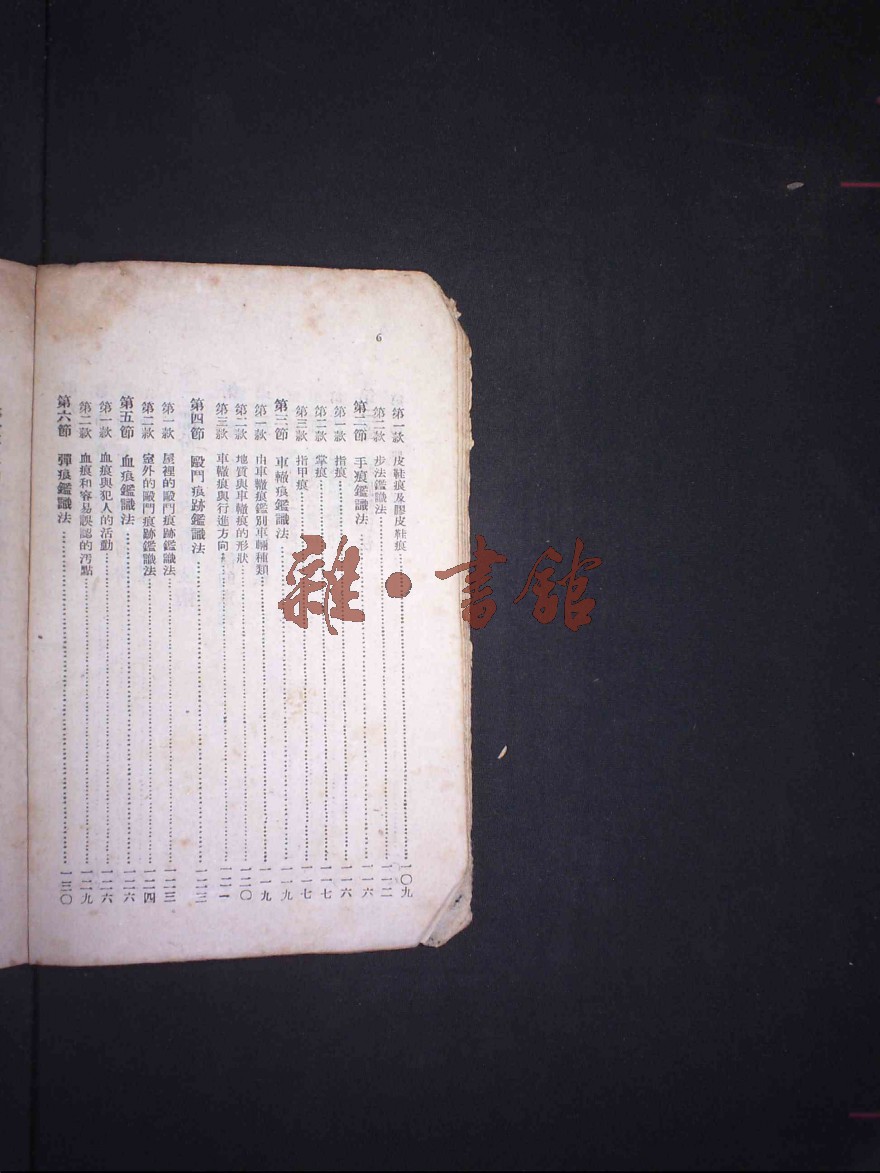 6
第一款 皮鞋痕及膠皮鞋痕……一〇九
第二款 步法鑑識法……一一二
第二節 手痕鑑識法……一一六
第一款 指痕……一一六
第二款 掌痕……一一七
第三款 指甲痕……一一七
第三節 車轍痕鑑識法……一一九
第一款 由車轍痕鑑別車輛種類……一一九
第二款 地質與車轍痕的形狀……一二〇
第三款 車轍痕與行進方向……一二一
第四節 毆鬥痕跡鑑識法……一二三
第一款 屋裡的毆鬥痕跡鑑識法……一二三
第二款 室外的毆鬥痕跡鑑識法……一二四
第五節 血痕鑑識法……一二六
第一款 血痕與犯人的活動……一二六
第二款 血痕和容易誤認的汚點……一二九
第六節 彈痕鑑識法……一三〇
雜·書館